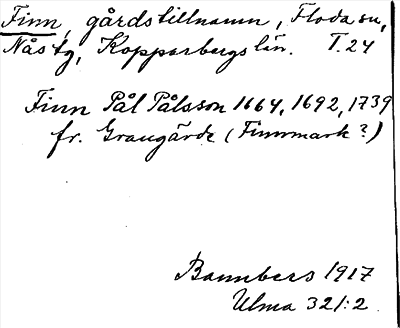 Finn, gårdstillnamn, Floda sn,
Nås tg, Kopparbergs län. T.24
Finn Pål Pålsson 1664, 1692, 1739
fr. Grangärde (Finnmark?)
Bannbers 1917
Ulma 321:2